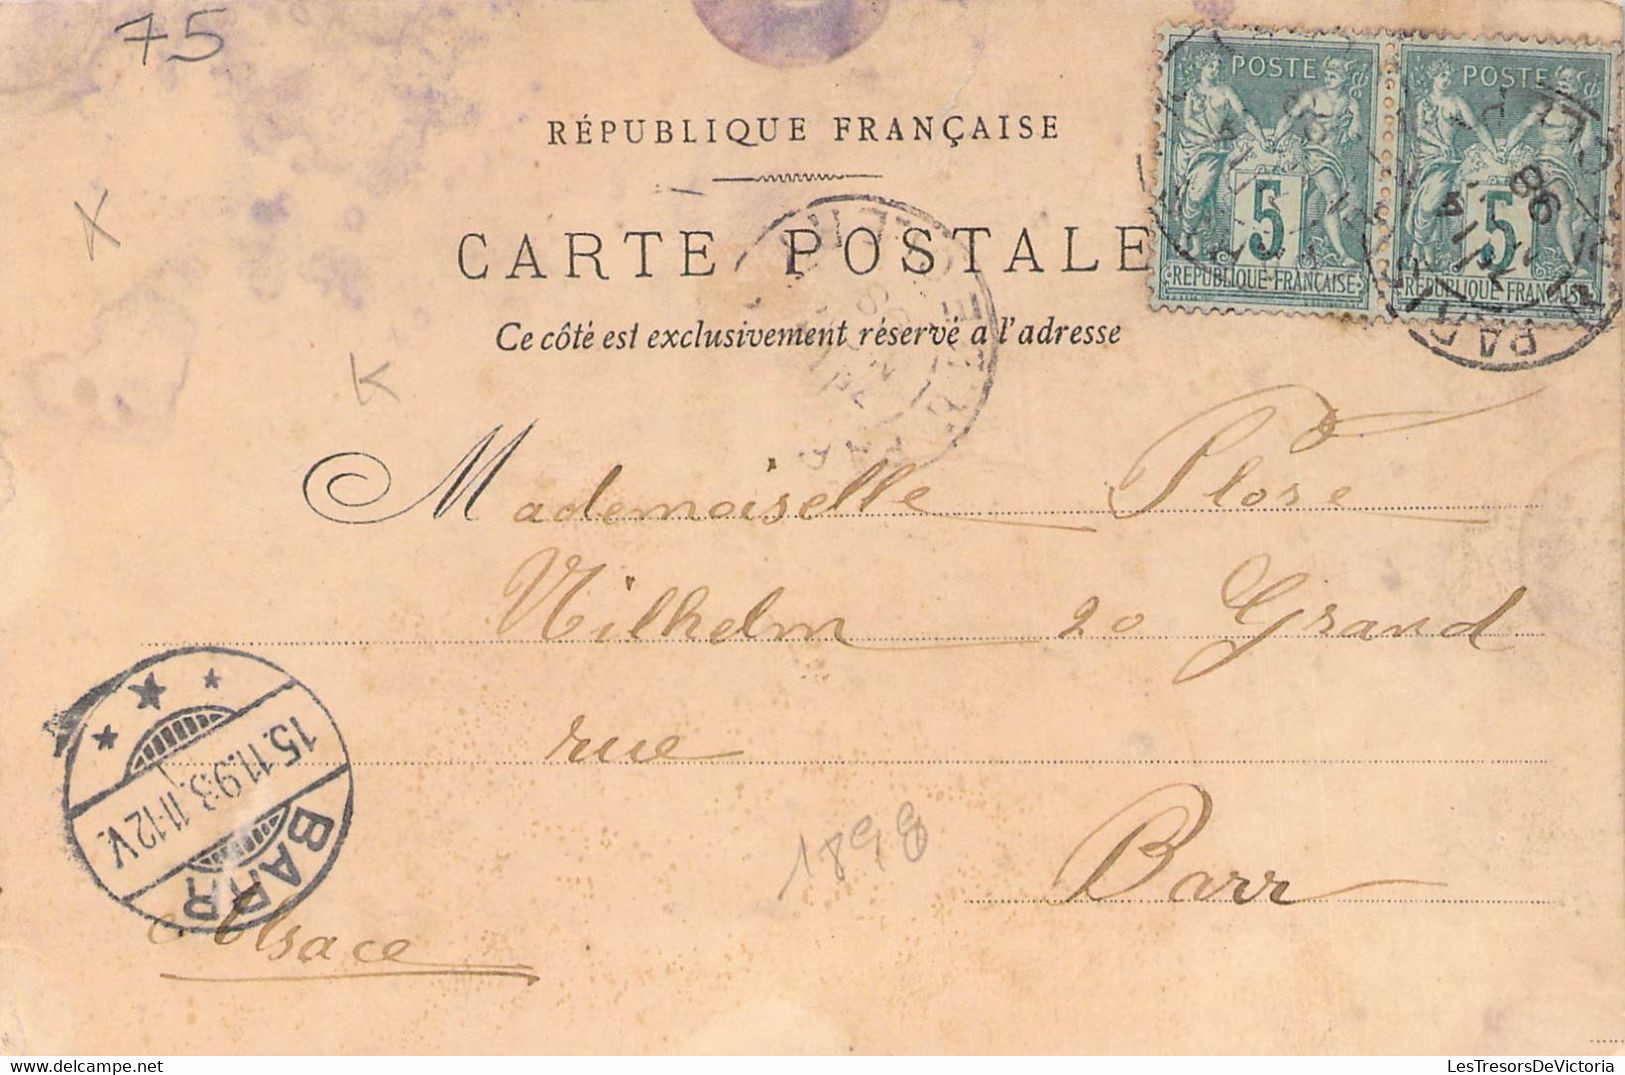 75
RÉPUBLIQUE FRANÇAISE
CARTE POSTALE
Ce côté est exclusivement réservé a l'adresse
POSTE
5
RÉPUBLIQUE FRANÇAISE
POSTE
5
RÉPUBLIQUE FRANÇAISE
PARIS
98
K
Mademoiselle Flore
Wilhelm 20 Grand
rue
Barr
Alsace
1898
15.11.98. 11-12 V.
BARR
LesTresorsDeVictoria